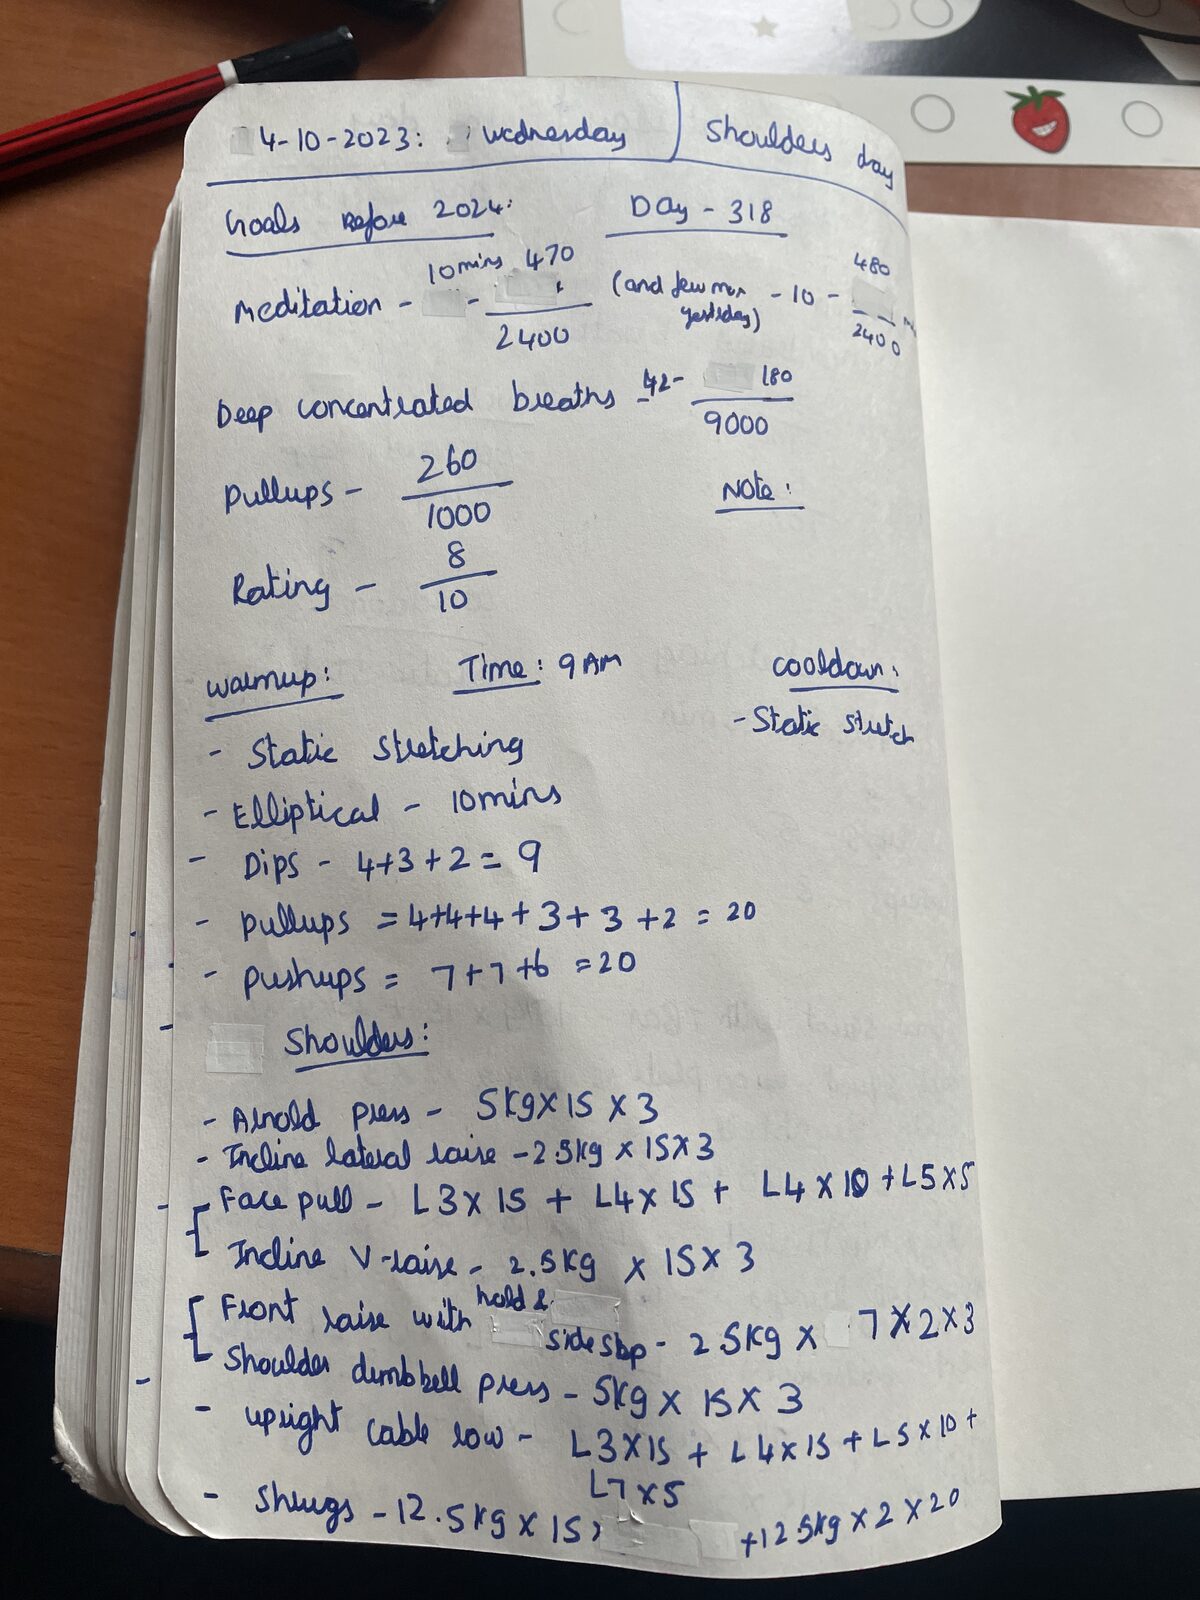 4-10-2023: Wednesday | Shoulders day
Goals Before 2024: Day - 318
Meditation - 10mins - 470/2400 (and few min yesterday) - 10 - 480/2400
Deep concentrated breaths - 42 - 180/9000
Pullups - 260/1000 Note:
Rating - 8/10
Warmup: Time: 9AM Cooldown:
- Static Stretching - Static Stretch
- Elliptical - 10mins
- Dips - 4+3+2 = 9
- Pullups = 4+4+4+3+3+2 = 20
- Pushups = 7+7+6 = 20
- Shoulders:
- Arnold press - 5kg×15×3
- Incline lateral raise - 2.5kg×15×3
- Face pull - L3×15 + L4×15 + L4×10 + L5×5
Incline V-raise - 2.5kg × 15×3
Front raise with hold & side - 2.5kg × 7×2×3
Shoulder dumbbell press - 5kg × 15×3
- Upright cable row - L3×15 + L4×15 + L5×10 +
L7×5
- Shrugs - 12.5kg × 15 + 12.5kg × 2 × 20